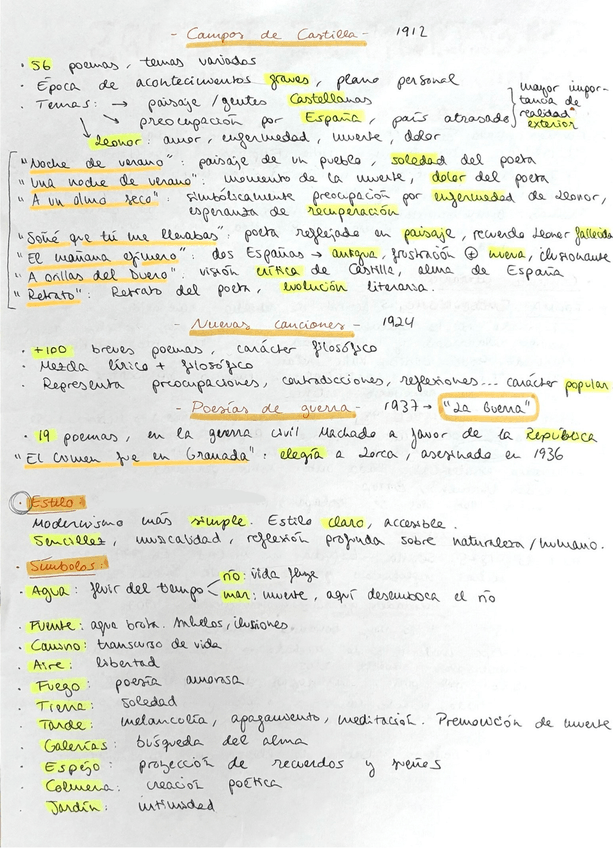 - Campos de Castilla - 1912
· 56 poemas, temas variados
· Época de acontecimientos graves, plano personal
· Temas: → paisaje/gentes Castellanas
→ preocupación por España, país atrasado
mayor impor-
tancia de
realidad
exterior
Leonor: amor, enfermedad, muerte, dolor
"Noche de verano": paisaje de un pueblo, soledad del poeta
"Una noche de verano": momento de la muerte, dolor del poeta
"A un olmo seco": simbólicamente preocupación por enfermedad de Leonor,
esperanza de recuperación
"Soñé que tú me llevabas": poeta reflejado en paisaje, recuerdo Leonor fallecida
"El mañana efímero": dos Españas → antigua, frustración ⊕ nueva, ilusionante
"A orillas del Duero": visión crítica de Castilla, alma de España
"Retrato": Retrato del poeta, evolución literaria.
- Nuevas canciones - 1924
· +100 breves poemas, carácter filosófico
· Mezcla lírico + filosófico
· Representa preocupaciones, contradicciones, reflexiones... carácter popular
- Poesías de guerra - 1937 → "La Guerra"
· 19 poemas, en la guerra civil Machado a favor de la República
"El crimen fue en Granada": elegía a Lorca, asesinado en 1936
· Estilo:
Modernismo más simple. Estilo claro, accesible.
Sencillez, musicalidad, reflexión profunda sobre naturaleza/humano.
· Símbolos:
· Agua: fluir del tiempo < río: vida fluye
mar: muerte, aquí desemboca el río
Fuente: agua brota. Anhelos, ilusiones.
· Camino: transcurso de vida
· Aire: libertad
· Fuego: poesía amorosa
· Tierra: soledad
· Tarde: melancolía, apagamiento, meditación. Premonición de muerte
· Galerías: búsqueda del alma
· Espejo: proyección de recuerdos y sueños
· Colmena: creación poética
· Jardín: intimidad